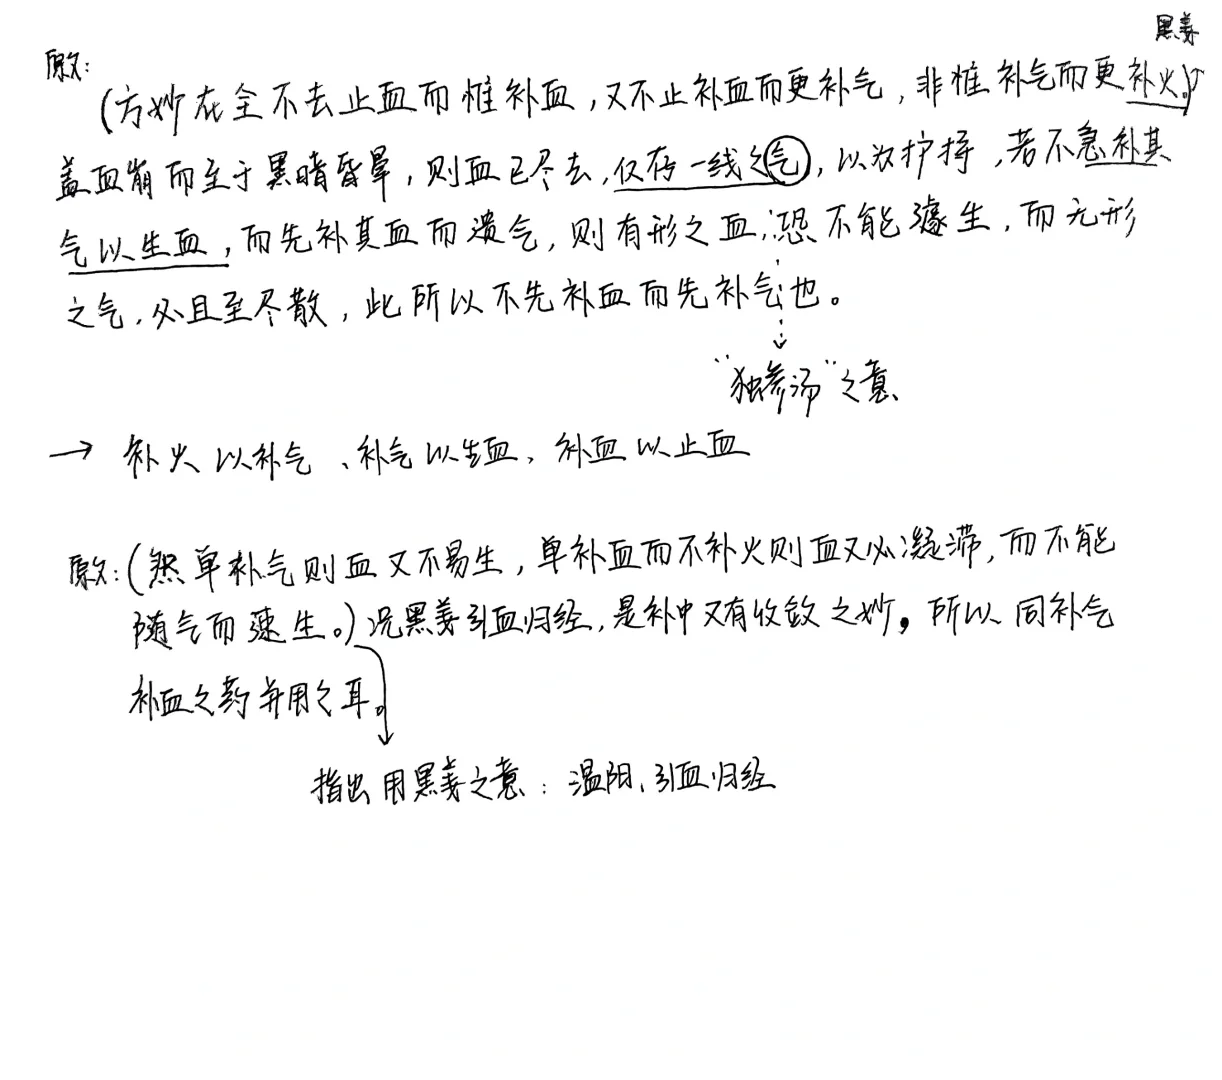 黑姜
原文:
(方妙在全不去止血而惟补血,又不止补血而更补气,非惟补气而更补火。)
盖血崩而至于黑暗昏晕,则血已尽去,仅存一线之气,以为护持,若不急补其
气以生血,而先补其血而遗气,则有形之血,恐不能遽生,而无形
之气,必且至尽散,此所以不先补血而先补气也。
“独参汤”之意
→ 补火以补气、补气以生血、补血以止血
原文:(然单补气则血又不易生,单补血而不补火则血又必凝滞,而不能
随气而速生。)况黑姜引血归经,是补中又有收敛之妙,所以同补气
补血之药并用之耳。
指出用黑姜之意:温阳、引血归经